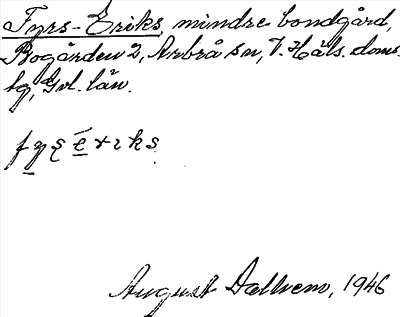 Fyrs-Eriks, mindre bondgård,
Bogården 2, Arbrå sn, V. Häls. doms-
tg, Gvl. län.
August Dallvem, 1946